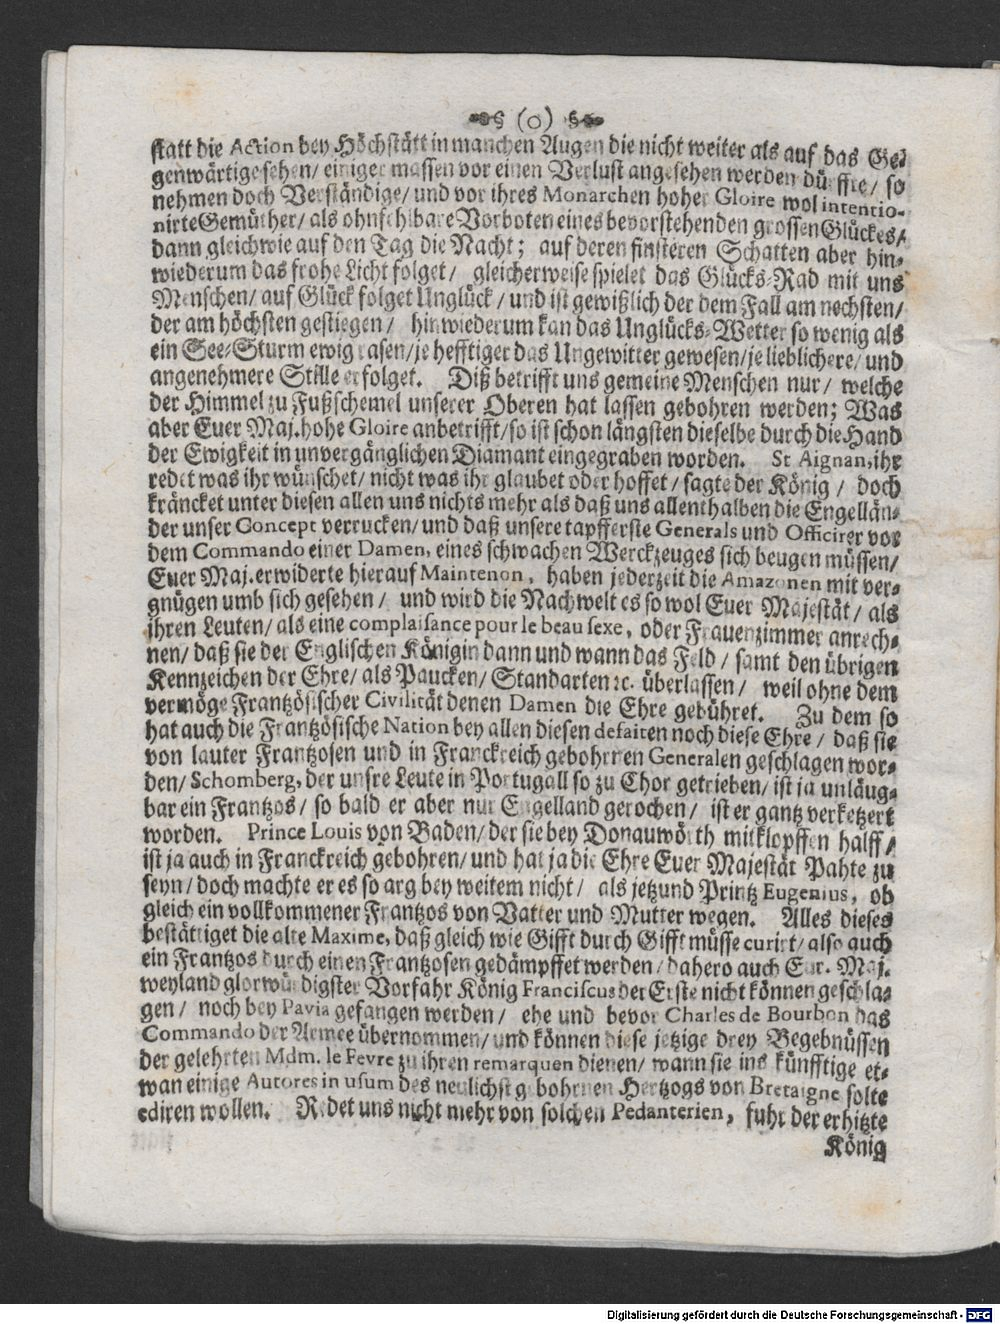 (o)
statt die Action bey Höchstätt in manchen Augen die nicht weiter als auf das Ge-
genwärtige sehen/ einiger massen vor einen Verlust angesehen werden dürffte/ so
nehmen doch Verständige/ und vor ihres Monarchen hoher Gloire wol intentio-
nirte Gemüther/ als ohnfehlbare Vorboten eines bevorstehenden grossen Glückes/
dann gleichwie auf den Tag die Nacht; auf deren finsteren Schatten aber hin-
wiederum das frohe Licht folget/ gleicherweise spielet das Glücks-Rad mit uns
Menschen/ auf Glück folget Unglück/ und ist gewißlich der dem Fall am nechsten/
der am höchsten gestiegen/ hinwiederum kan das Unglücks-Wetter so wenig als
ein See-Sturm ewig rasen/ je hefftiger das Ungewitter gewesen/ je lieblichere/ und
angenehmere Stille erfolget. Diß betrifft uns gemeine Menschen nur/ welche
der Himmel zu Fußschemel unserer Oberen hat lassen gebohren werden; Was
aber Euer Maj. hohe Gloire anbetrifft/ so ist schon längsten dieselbe durch die Hand
der Ewigkeit in unvergänglichen Diamant eingegraben worden. St Aignan, ihr
redet was ihr wünschet/ nicht was ihr glaubet oder hoffet/ sagte der König/ doch
kräncket unter diesen allen uns nichts mehr als daß uns allenthalben die Engellän-
der unser Concept verrucken/ und daß unsere tapfferste Generals und Officirer vor
dem Commando einer Damen, eines schwachen Werckzeuges sich beugen müssen/
Euer Maj. erwiderte hierauf Maintenon, haben jederzeit die Amazonen mit ver-
gnügen umb sich gesehen/ und wird die Nachwelt es so wol Euer Majestät/ als
ihren Leuten/ als eine complaisance pour le beau sexe, oder Frauenzimmer anrech-
nen/ daß sie der Englischen Königin dann und wann das Feld/ samt den übrigen
Kennzeichen der Ehre/ als Paucken/ Standarten ꝛc. überlassen/ weil ohne dem
vermöge Frantzösischer Civilität denen Damen die Ehre gebühret. Zu dem so
hat auch die Frantzösische Nation bey allen diesen defaiten noch diese Ehre/ daß sie
von lauter Frantzosen und in Franckreich gebohrnen Generalen geschlagen wor-
den/ Schomberg, der unsre Leute in Portugall so zu Chor getrieben/ ist ja unläug-
bar ein Frantzos/ so bald er aber nur Engelland gerochen/ ist er gantz verketzert
worden. Prince Louis von Baden/ der sie bey Donauwörth mitklopffen halff/
ist ja auch in Franckreich gebohren/ und hat ja die Ehre Euer Majestät Pahte zu
seyn/ doch machte er es so arg bey weitem nicht/ als jetzund Printz Eugenius, ob
gleich ein vollkommener Frantzos von Vatter und Mutter wegen. Alles dieses
bestättiget die alte Maxime, daß gleich wie Gifft durch Gifft müsse curirt/ also auch
ein Frantzos durch einen Frantzosen gedämpffet werden/ dahero auch Eur. Maj.
weyland glorwürdigster Vorfahr König Franciscus der Erste nicht können geschla-
gen/ noch bey Pavia gefangen werden/ ehe und bevor Charles de Bourbon das
Commando der Armee übernommen/ und können diese jetzige drey Begebnüssen
der gelehrten Mdm. le Fevre zu ihren remarquen dienen/ wann sie ins künfftige et-
wan einige Autores in usum des neulichst gebohrnen Hertzogs von Bretaigne solte
ediren wollen. Redet uns nicht mehr von solchen Pedanterien, fuhr der erhitzte
König
Digitalisierung gefördert durch die Deutsche Forschungsgemeinschaft - DFG